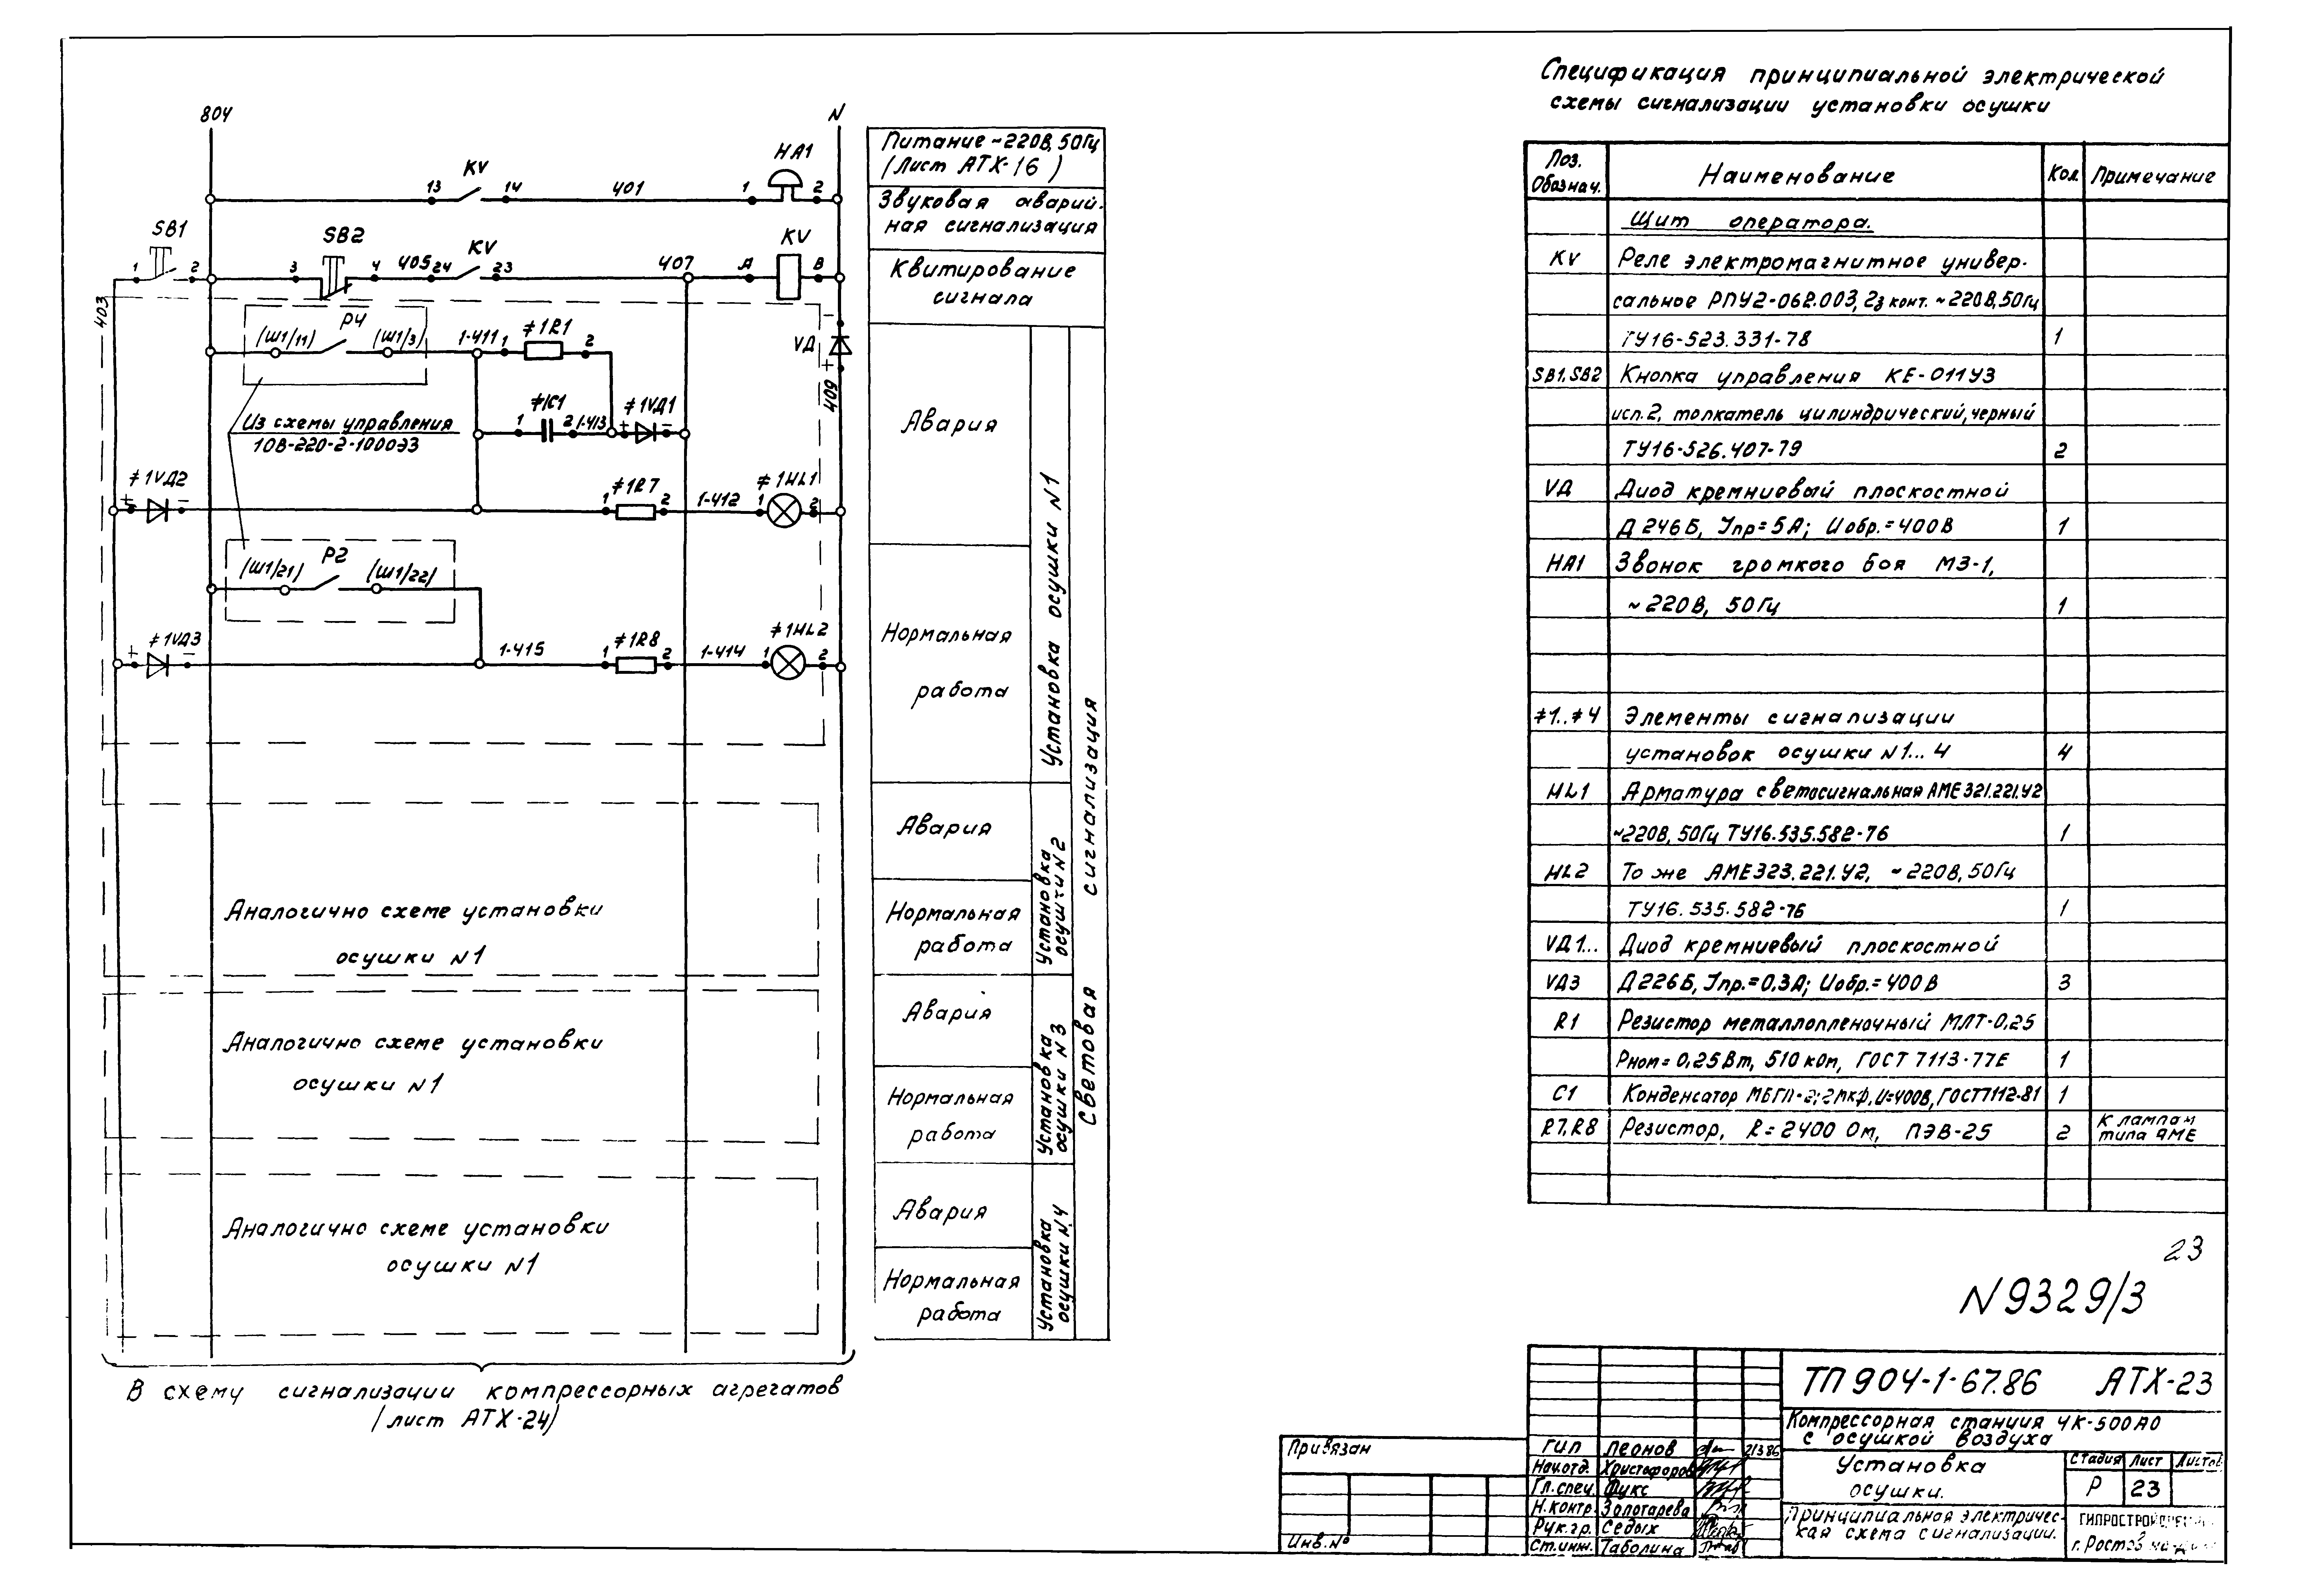 Спецификация принципиальной электрической
схемы сигнализации установки осушки
804
N
KV
HA1
13
14
401
1
2
SB1
SB2
KV
KV
1
2
3
4
405
24
23
407
A
B
403
P4
(Ш1/11)
(Ш1/3)
1-411
≠1R1
1
2
VД
409
Из схемы управления
10В-220-2-1000ЭЗ
≠1C1
1
2
1-413
≠1VД1
≠1VД2
≠1R7
1
2
1-412
≠1HL1
1
2
P2
(Ш1/21)
(Ш1/22)
≠1VД3
1-415
≠1R8
1
2
1-414
≠1HL2
1
2
Аналогично схеме установки
осушки N1
Аналогично схеме установки
осушки N1
Аналогично схеме установки
осушки N1
В схему сигнализации компрессорных агрегатов
(лист АТХ-24)
Питание ~220В, 50Гц
(Лист АТХ-16)
Звуковая аварий-
ная сигнализация
Квитирование
сигнала
Авария
Нормальная
работа
Установка осушки N1
Авария
Нормальная
работа
Установка
осушки N2
Авария
Нормальная
работа
Установка
осушки N3
Авария
Нормальная
работа
Установка
осушки N4
Световая сигнализация
Поз. Обознач. Наименование Кол. Примечание
Щит оператора.
KV Реле электромагнитное универ-
сальное РПУ2-062.003, 2з конт. ~220В, 50Гц
ТУ16-523.331-78 1
SB1, SB2 Кнопка управления КЕ-011У3
исп. 2, толкатель цилиндрический, черный
ТУ16-526.407-79 2
VД Диод кремниевый плоскостной
Д246Б, Iпр=5А; Uобр.=400В 1
HA1 Звонок громкого боя МЗ-1,
~220В, 50Гц 1
≠1..≠4 Элементы сигнализации
установок осушки N1...4 4
HL1 Арматура светосигнальная АМЕ321.221.У2
~220В, 50Гц ТУ16.535.582-76 1
HL2 То же АМЕ323.221.У2, ~220В, 50Гц
ТУ16.535.582-76 1
VД1... Диод кремниевый плоскостной
VД3 Д226Б, Iпр.=0,3А; Uобр.=400В 3
R1 Резистор металлопленочный МЛТ-0,25
Рном=0,25Вт, 510 кОм, ГОСТ 7113-77Е 1
C1 Конденсатор МБГП-2; 2мкф, U=400В, ГОСТ7112-81 1
R7, R8 Резистор, R=2400 Ом, ПЭВ-25 2 К лампам
типа АМЕ
23
N9329/3
ТП904-1-67.86 АТХ-23
Компрессорная станция 4К-500А0
с осушкой воздуха
ГИП Леонов 21386
Нач.отд. Христофоров
Гл.спец. Фукс
Н.контр. Золотарева
Рук.гр. Седых
Ст.инж. Таболина
Установка
осушки.
Стадия Лист Листов
Р 23
Принципиальная электричес-
кая схема сигнализации.
г. Ростов
Привязан
Инв.N°